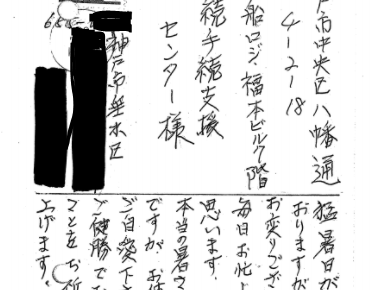 戸市中央区八幡通
4-2-18
船ロジ・福本ビル7階
続手続支援
センター様
神戸市垂水区
猛暑日が
おりますが
お変りござ
毎日お忙し
思います。
本当の暑さ
ですが、お体
ご自愛下さ
ご健勝で
上げます。